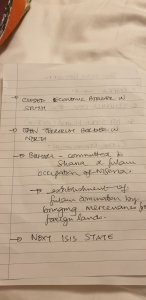 → CREATE ECONOMIC ADVERSE IN
SOUTH
→ OPEN TERRORISM BORDER IN
NORTH
→ BUHARI - committed to
Sharia & fulani
occupation of Nigeria.
→ establishment of
fulani domination by
bringing mercenaries from
foreign lands.
→ NEXT ISIS STATE